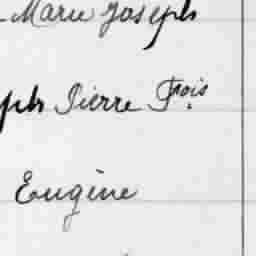 Marie Joseph
ph Pierre Frois.
Eugène